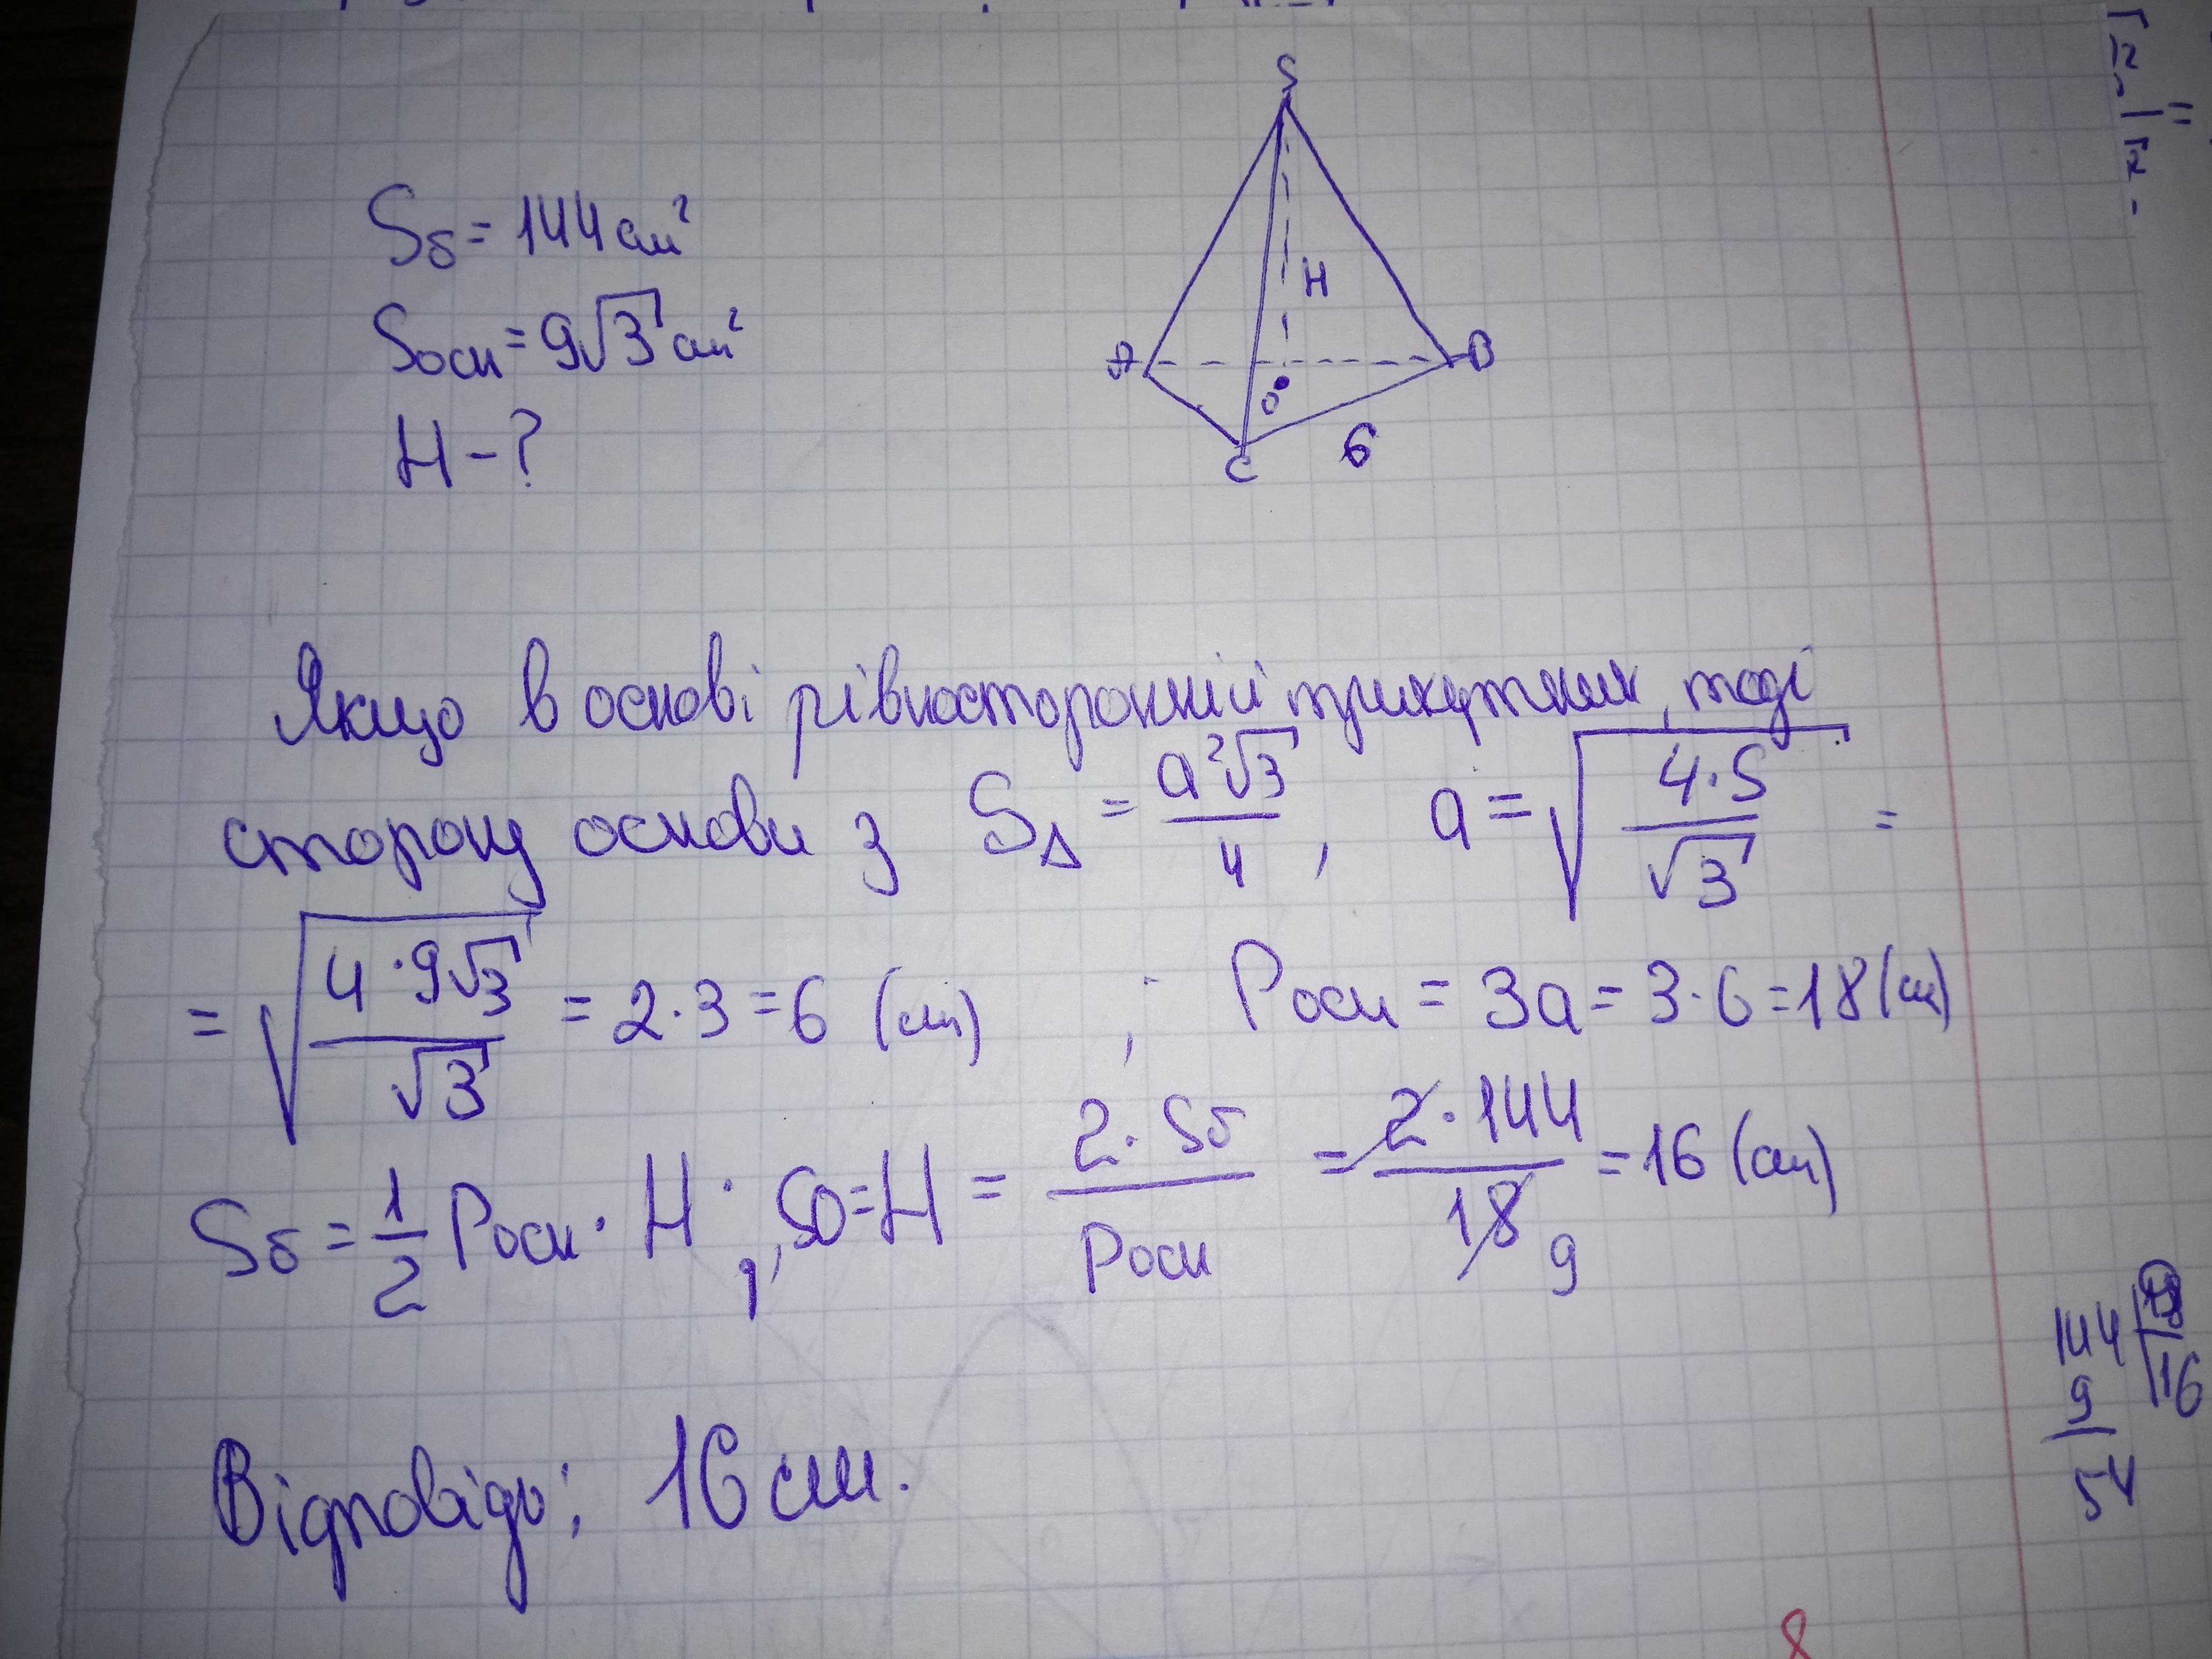 S
Sб = 144 см²
H
Sосн = 9√3 см²
A
B
O
H - ?
C
6
Якщо в основі рівносторонній трикутник, тоді
сторону основи з S△ = a²√3/4, a = √(4·S/√3) =
= √(4·9√3/√3) = 2·3 = 6 (см) ; Pосн = 3a = 3·6 = 18 (см)
Sб = 1/2 Pосн · H ; SO = H = 2·Sб/Pосн = 2·144/18 9 = 16 (см)
144
16
9
54
Відповідь: 16 см.
8